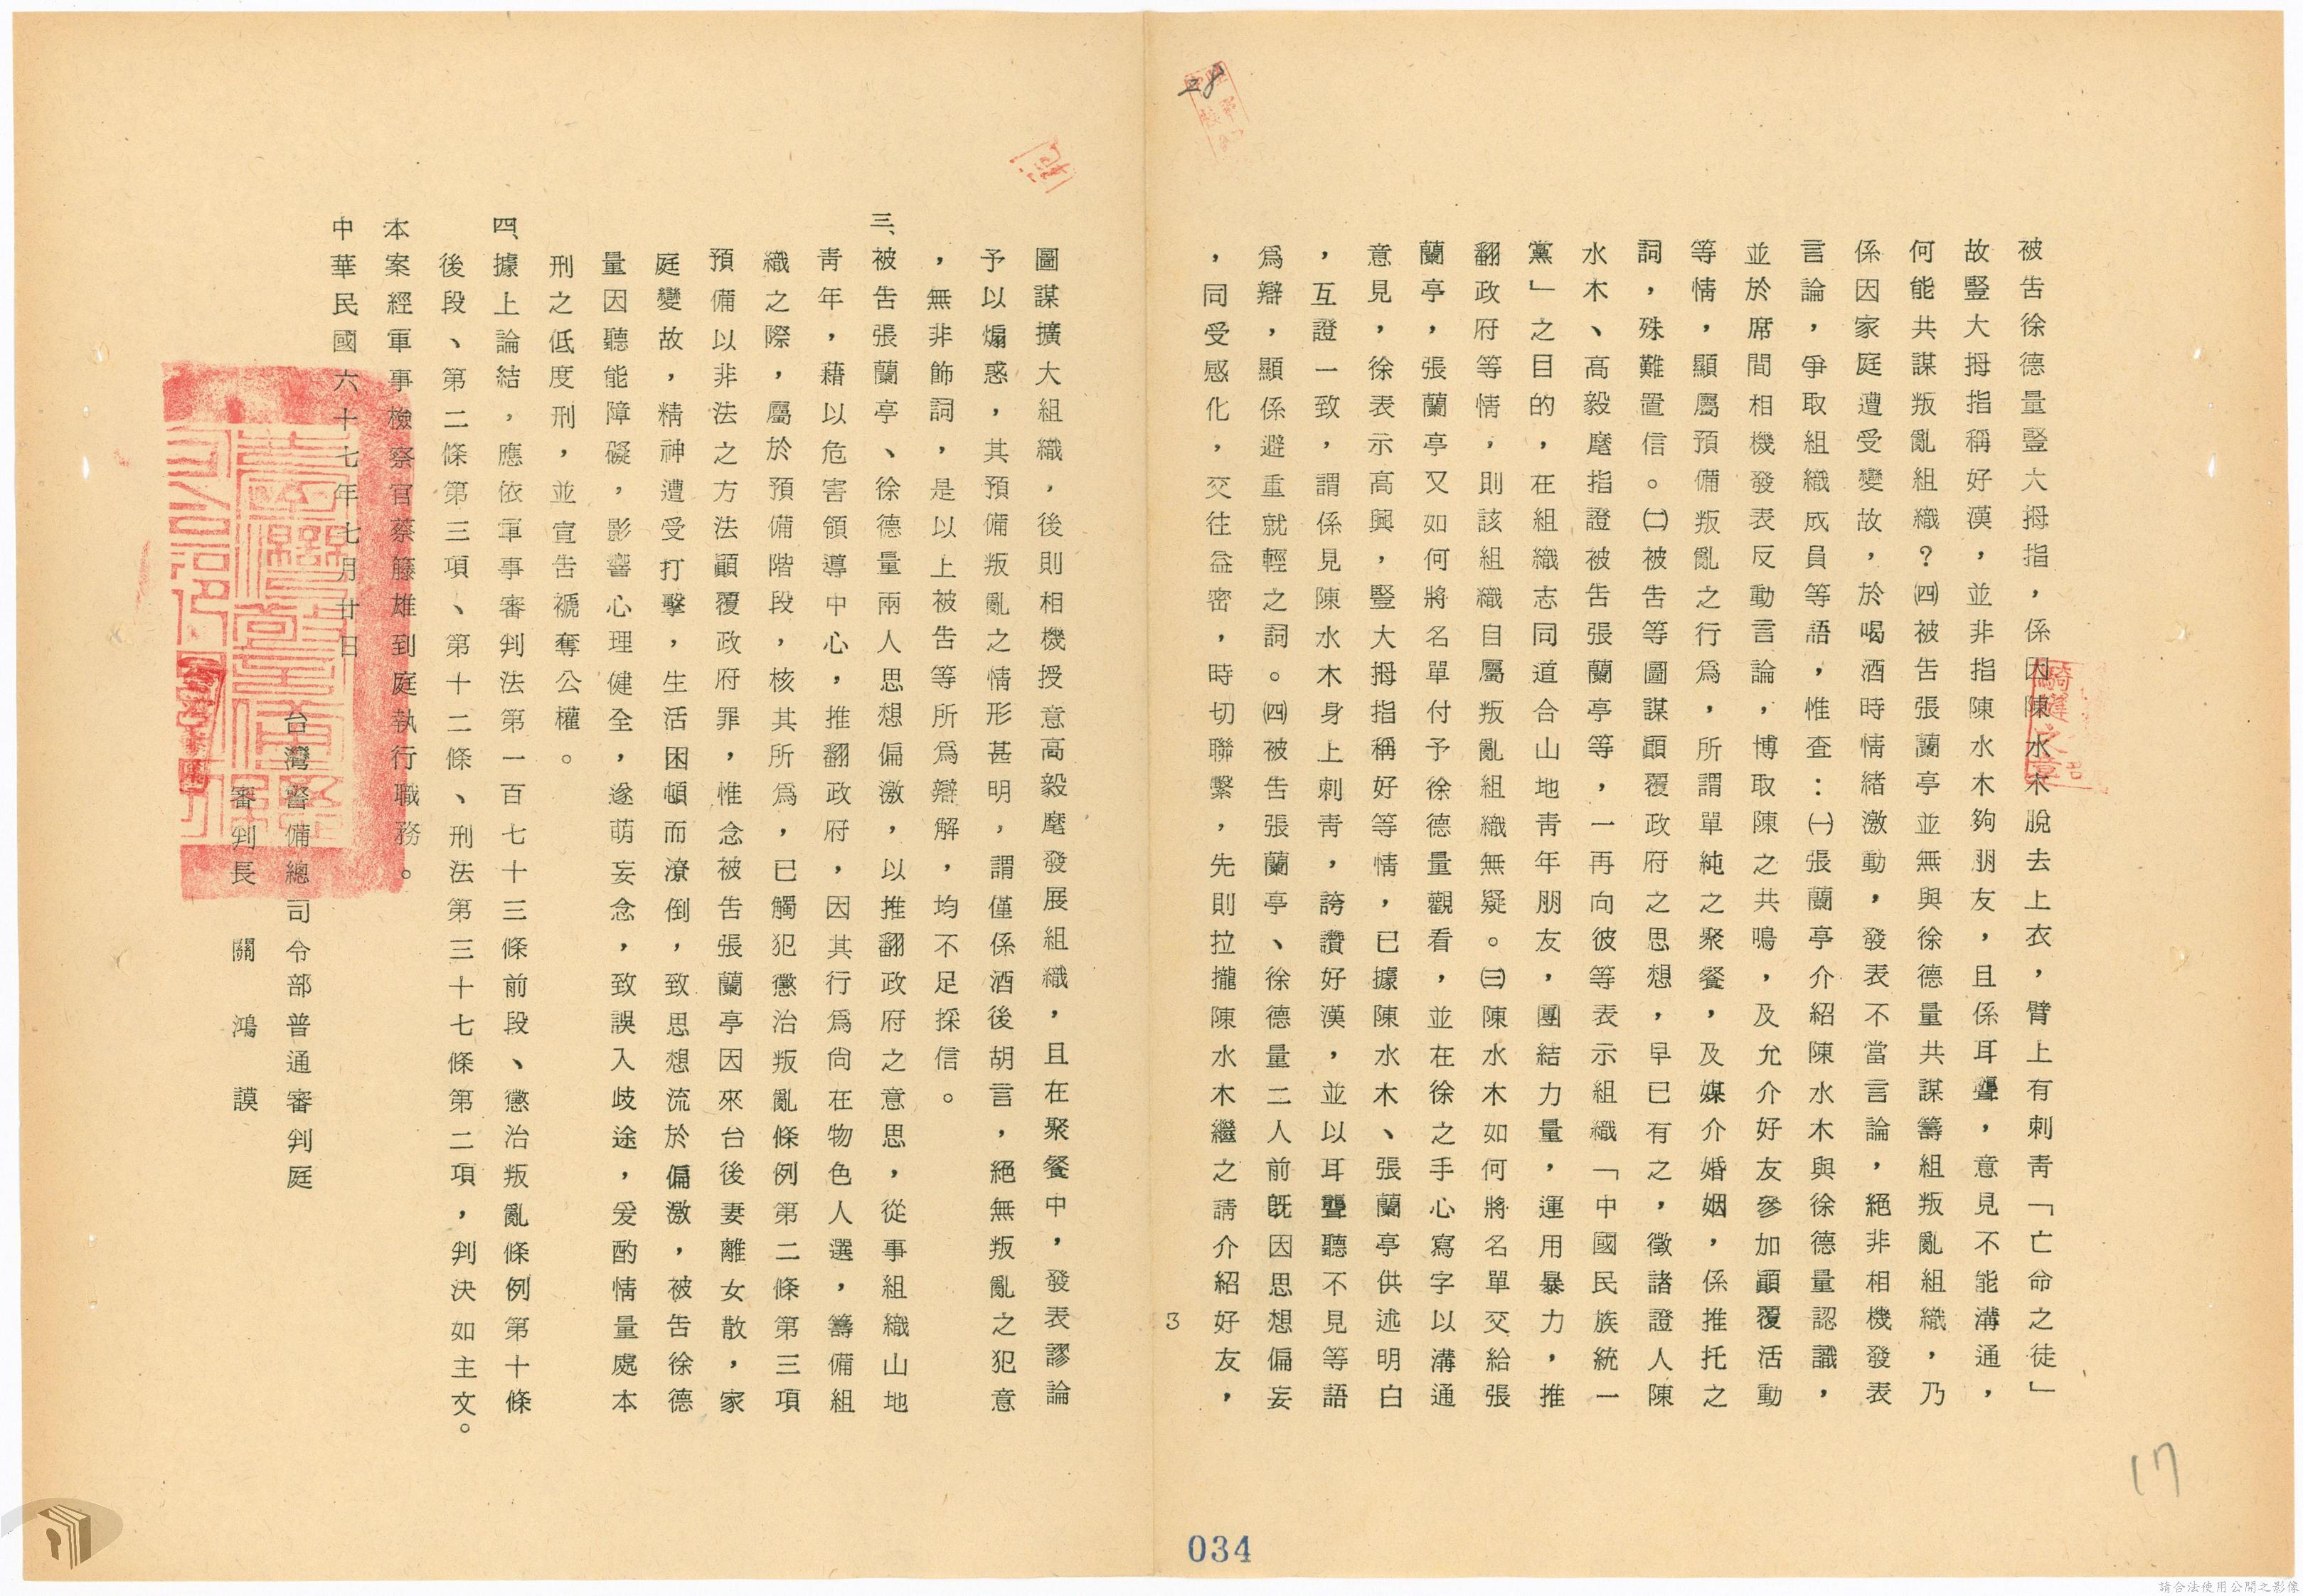 28
被告徐德量豎大拇指，係因陳水木脫去上衣，臂上有刺青「亡命之徒」
故豎大拇指稱好漢，並非指陳水木夠朋友，且係耳聾，意見不能溝通，
何能共謀叛亂組織？㈣被告張蘭亭並無與徐德量共謀籌組叛亂組織，乃
係因家庭遭受變故，於喝酒時情緒激動，發表不當言論，絕非相機發表
言論，爭取組織成員等語，惟查：㈠張蘭亭介紹陳水木與徐德量認識，
並於席間相機發表反動言論，博取陳之共鳴，及允介好友參加顚覆活動
等情，顯屬預備叛亂之行為，所謂單純之聚餐，及媒介婚姻，係推托之
詞，殊難置信。㈡被告等圖謀顚覆政府之思想，早已有之，徵諸證人陳
水木、高毅麾指證被告張蘭亭等，一再向彼等表示組織「中國民族統一
黨」之目的，在組織志同道合山地青年朋友，團結力量，運用暴力，推
翻政府等情，則該組織自屬叛亂組織無疑。㈢陳水木如何將名單交給張
蘭亭，張蘭亭又如何將名單付予徐德量觀看，並在徐之手心寫字以溝通
意見，徐表示高興，豎大拇指稱好等情，已據陳水木、張蘭亭供述明白
，互證一致，謂係見陳水木身上刺青，誇讚好漢，並以耳聾聽不見等語
為辯，顯係避重就輕之詞。㈣被告張蘭亭、徐德量二人前既因思想偏妄
，同受感化，交往益密，時切聯繫，先則拉攏陳水木繼之請介紹好友，
3
圖謀擴大組織，後則相機授意高毅麾發展組織，且在聚餐中，發表謬論
予以煽惑，其預備叛亂之情形甚明，謂僅係酒後胡言，絕無叛亂之犯意
，無非飾詞，是以上被告等所為辯解，均不足採信。
三、被告張蘭亭、徐德量兩人思想偏激，以推翻政府之意思，從事組織山地
青年，藉以危害領導中心，推翻政府，因其行為尚在物色人選，籌備組
織之際，屬於預備階段，核其所為，已觸犯懲治叛亂條例第二條第三項
預備以非法之方法顚覆政府罪，惟念被告張蘭亭因來台後妻離女散，家
庭變故，精神遭受打擊，生活困頓而潦倒，致思想流於偏激，被告徐德
量因聽能障礙，影響心理健全，遂萌妄念，致誤入歧途，爰酌情量處本
刑之低度刑，並宣告褫奪公權。
四、據上論結，應依軍事審判法第一百七十三條前段、懲治叛亂條例第十條
後段、第二條第三項、第十二條、刑法第三十七條第二項，判決如主文。
本案經軍事檢察官蔡籐雄到庭執行職務。
中華民國六十七年七月廿日
台灣警備總司令部普通審判庭
審判長　關　鴻　謨
騎縫之章
17
034
請合法使用公開之影像